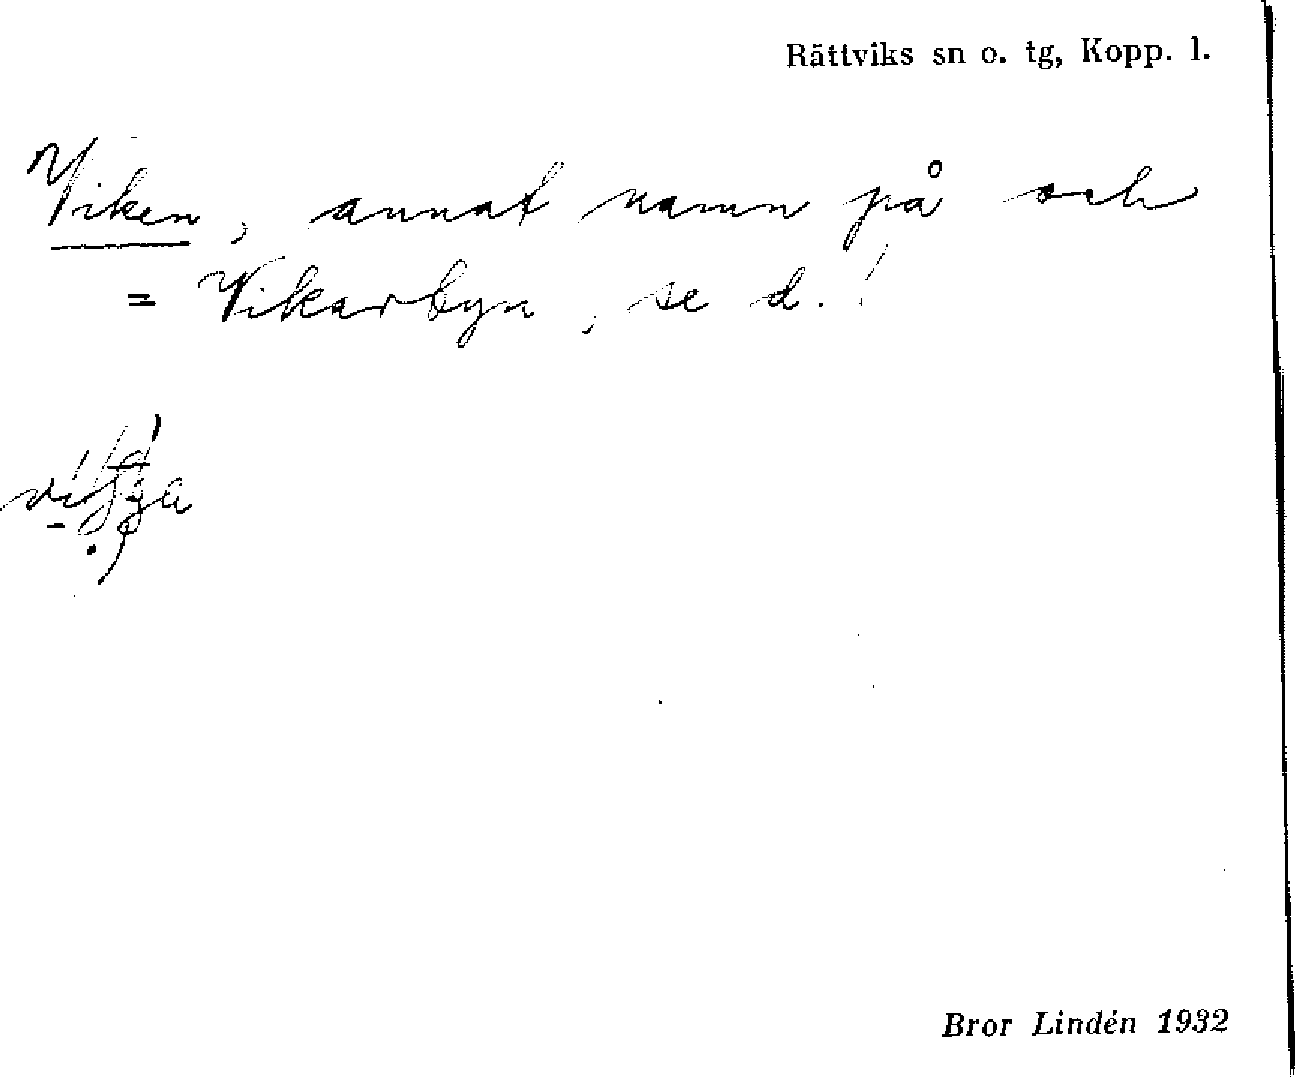 Rättviks sn o. tg, Kopp. l.
Viken, annat namn på och
= Vikarbyn, se d.!
Bror Lindén 1932